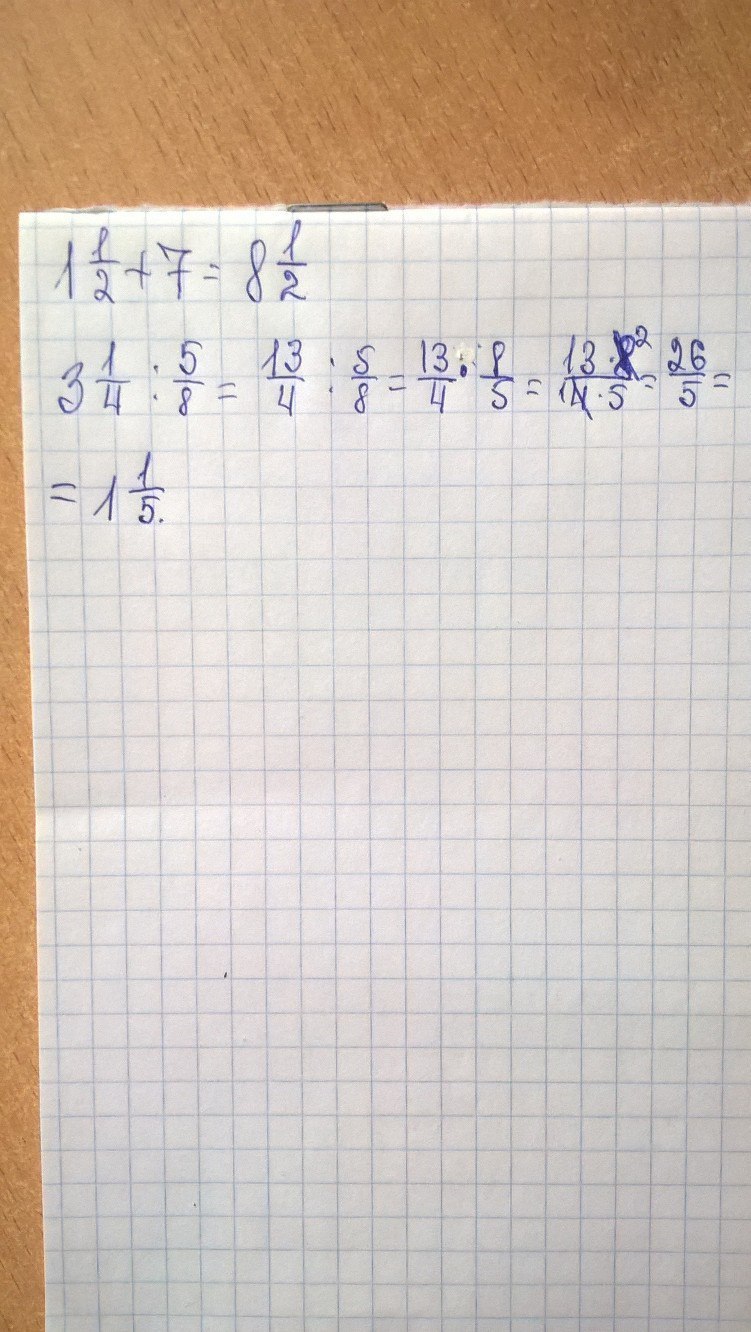 1 1/2 + 7 = 8 1/2
3 1/4 : 5/8 = 13/4 : 5/8 = 13/4 · 8/5 = 13·8²/14·5 = 26/5 =
= 1 1/5.